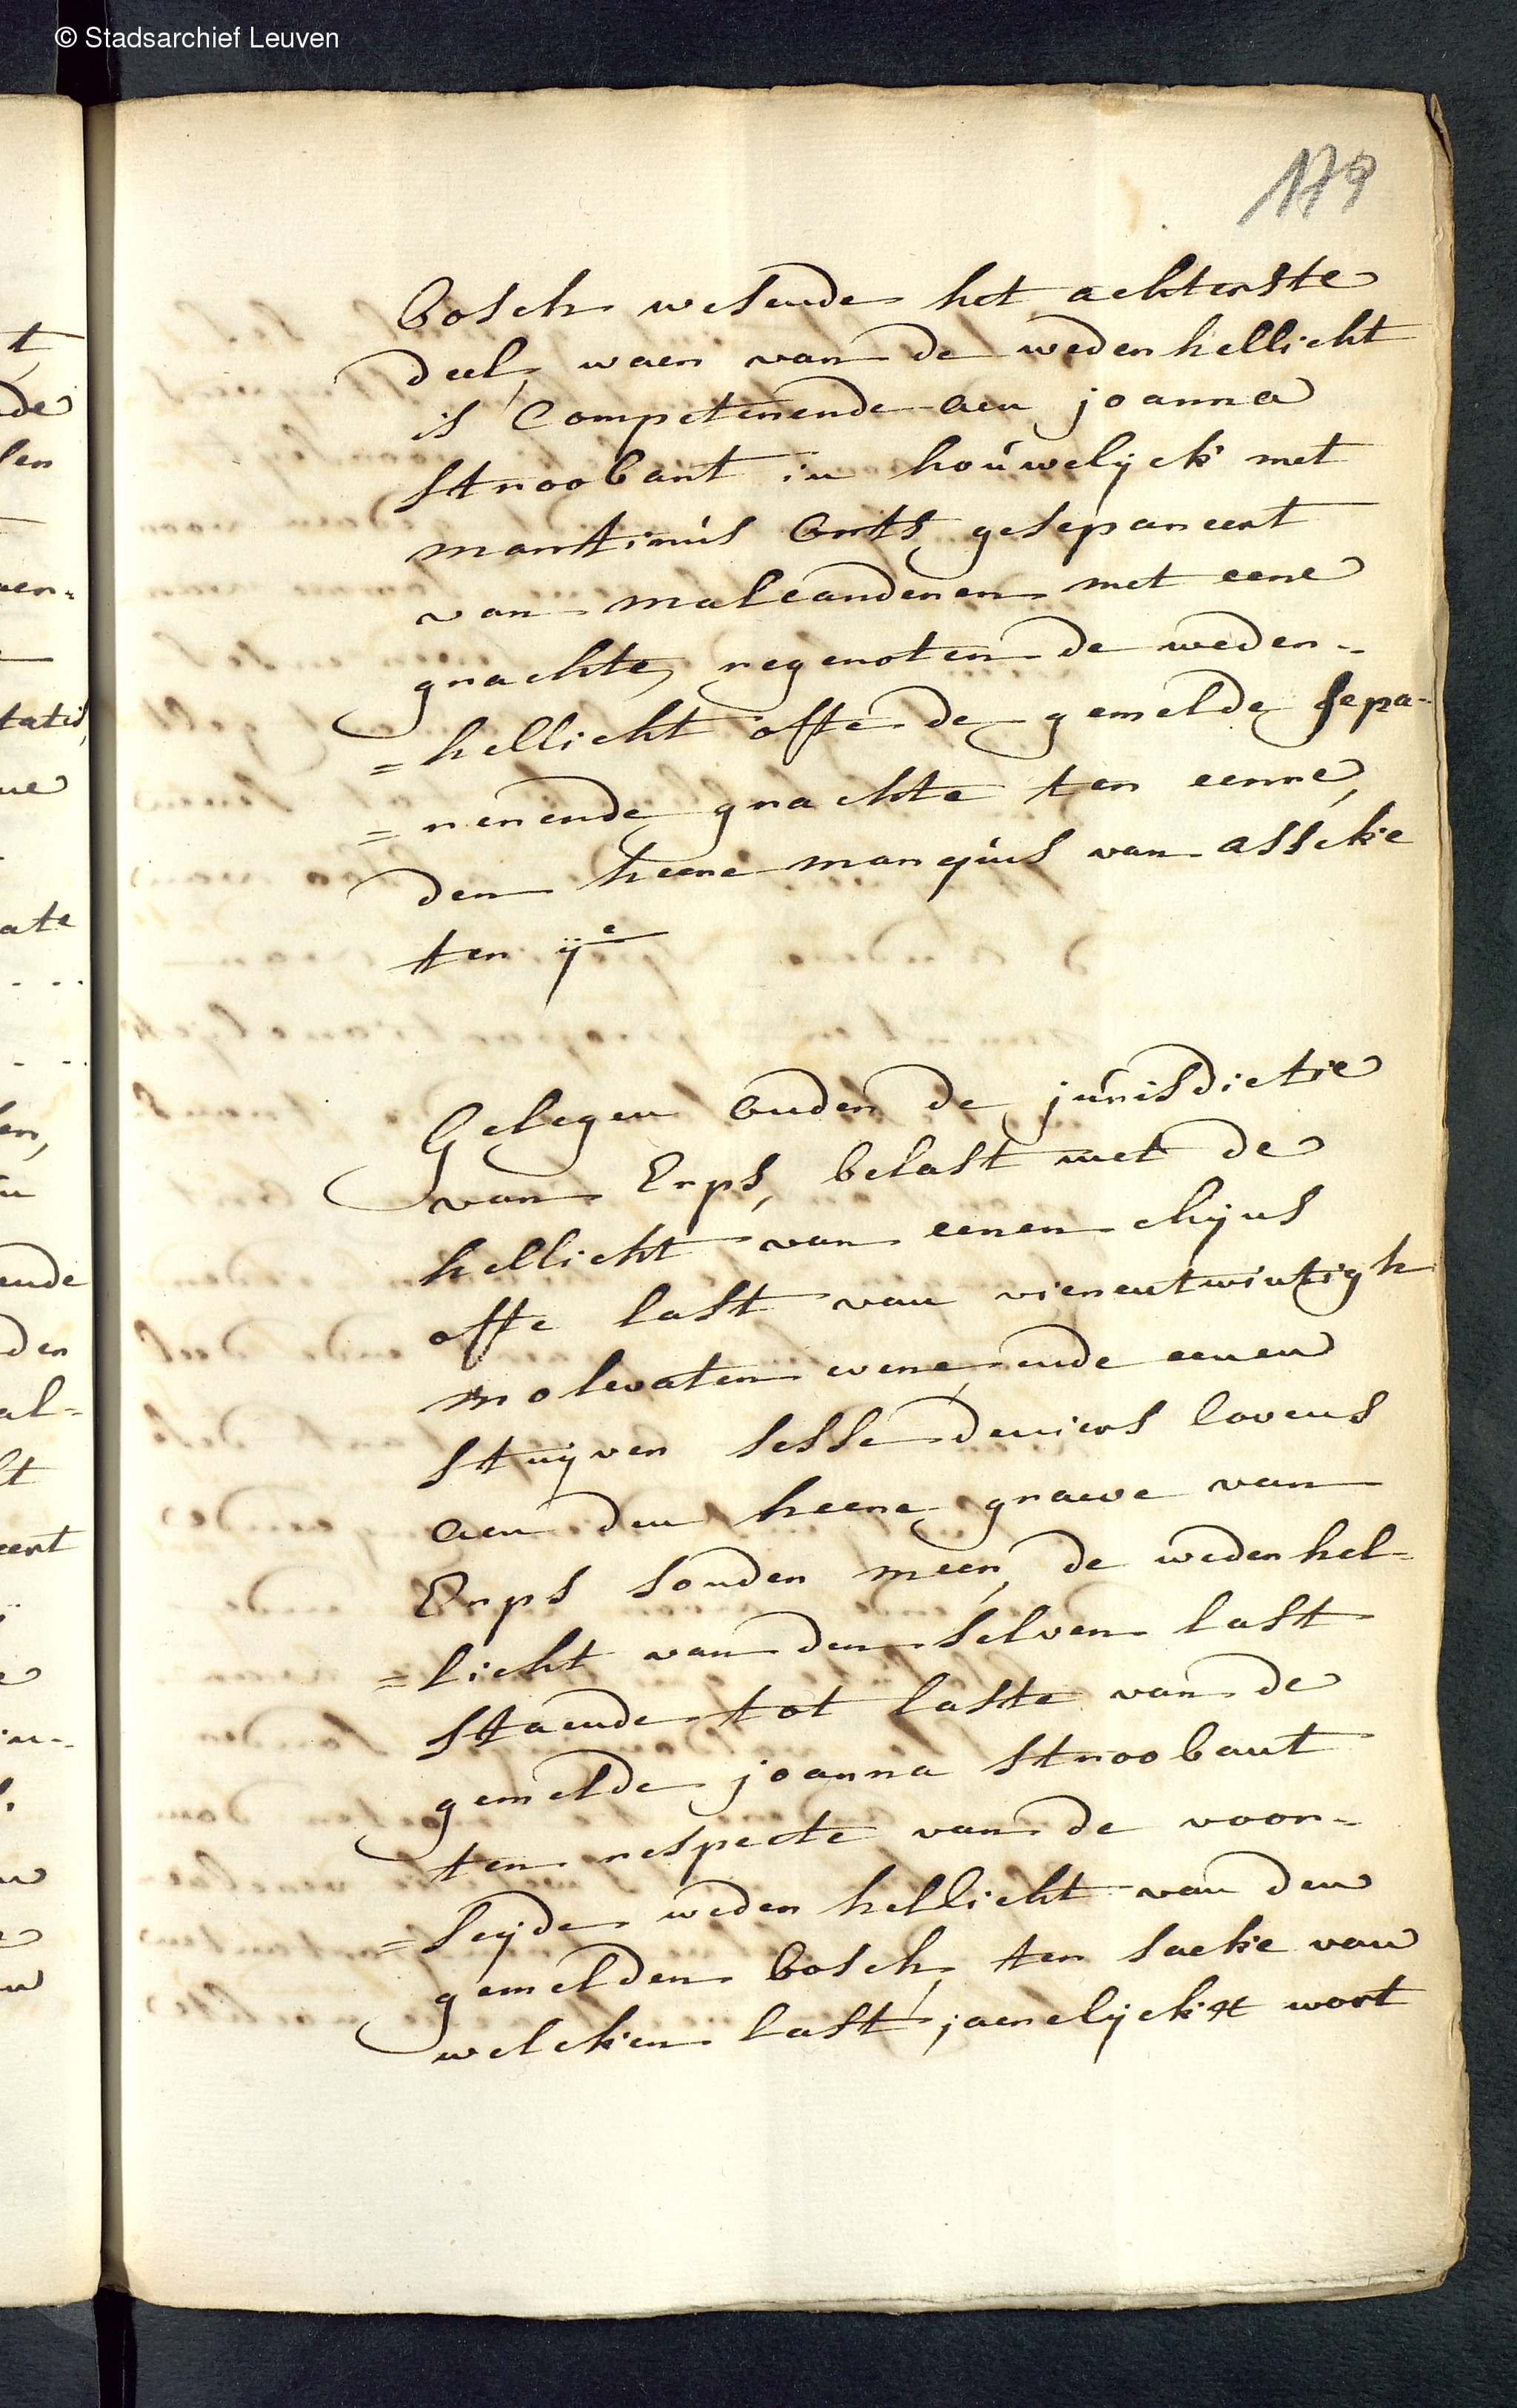 © Stadsarchief Leuven
179
bosch wesende het achterste
deel, waer van de wederhellicht
is Competerende aen joanna
stroobant in houwelyck met
martinus orts, gesepareert
van malcanderen met eene
grachte, regenoten de weder-
=hellicht ofte de gemelde sepa-
=rerende grachte ter eenre,
den heere marquis van assche
ter ije
Gelegen onder de jurisdictie
van Erps, belast met de
hellicht van eenen chijns
ofte last van vierentwintigh
molevaten evene, ende eenen
stuyver sesse deniers lovens
aen den heere grave van
Erps sonder meer, de wederhel-
=licht van den selven last
staende tot laste van de
gemelde joanna stroobant
ten respecte van de voor-
=seyde wederhellicht van den
gemelden bosch, ter saeke van
welcken last jaerelijckx wort
t
de
len
ver-
tatis,
ue
ate
en,
ende
den
al-
eert